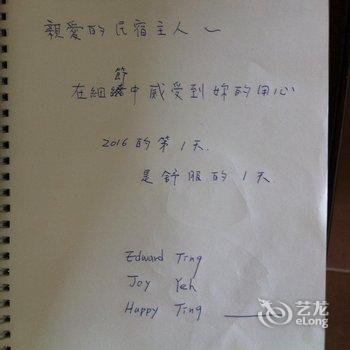 親愛的民宿主人～
在細節中感受到妳的用心
2016的第1天.
是舒服的1天.
Edward Ting
Joy Yeh
Happy Ting
艺龙
eLong